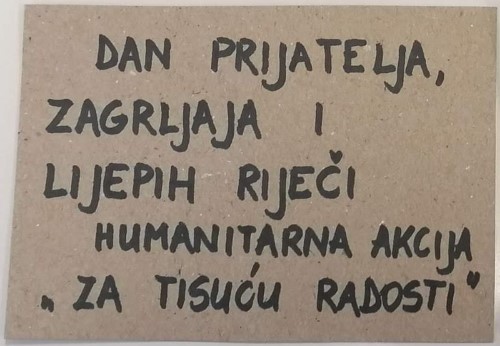 DAN PRIJATELJA,
ZAGRLJAJA I
LIJEPIH RIJEČI
HUMANITARNA AKCIJA
„ZA TISUĆU RADOSTI"